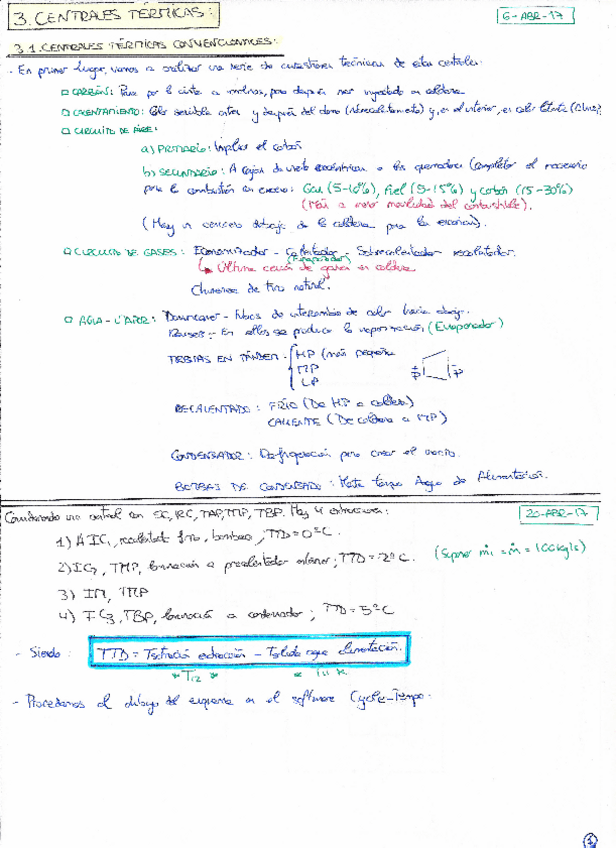 3. CENTRALES TÉRMICAS:
6-ABR-17
3.1. CENTRALES TÉRMICAS CONVENCIONALES:
- En primer lugar, vamos a realizar una serie de cuestiones técnicas de estas centrales:
CARBÓN: Pasa por la cinta a molinos, para después ser inyectado en caldera
CALENTAMIENTO: Calor sensible antes y después del domo (sobrecalentamiento) y, en el interior, es calor latente
CIRCUITO DE AIRE:
a) PRIMARIO: Impulsa el carbón
b) SECUNDARIO: A cajas de viento a los quemadores (completar el necesario
para la combustión en exceso: Gas (5-10%), Fuel (9-15%) y carbón (15-30%)
(Más a menor movilidad del combustible).
(Hay un cenicero debajo de la caldera para las escorias).
CIRCUITO DE GASES: Economizador - Calentador - Sobrecalentador recalentador.
(Evaporador)
Última cesión de gases en caldera
Chimenea de tiro natural.
AGUA-VAPOR: Downcomer - Tubos de intercambio de calor hacia abajo.
Risers - En ellos se produce la vaporización (Evaporador)
TURBINAS EN TÁNDEM - HP (más pequeña
MP
LP
RECALENTADO: FRÍO (De HP a caldera)
CALIENTE (De caldera a MP)
CONDENSADOR: Refrigeración para crear el vacío.
BOMBAS DE CONDENSADO: Hasta tanque Agua de Alimentación.
20-ABR-17
Considerando una central con SC, RC, TAP, TMP, TBP. Hay 4 extracciones:
1) A IC1, recalentado frío, bombeo; TTD=0ºC.
2) IC2, TMP, bombeación a precalentador anterior; TTD=2ºC.
(Suponer ṁ1 = ṁ = 100 kg/s)
3) IM, TMP
4) IC3, TBP, bombeación a condensador; TTD=5ºC
- Siendo: TTD = Tsaturación extracción - Tsalida agua alimentación.
- Procedemos al dibujo del esquema en el software Cycle-Tempo.